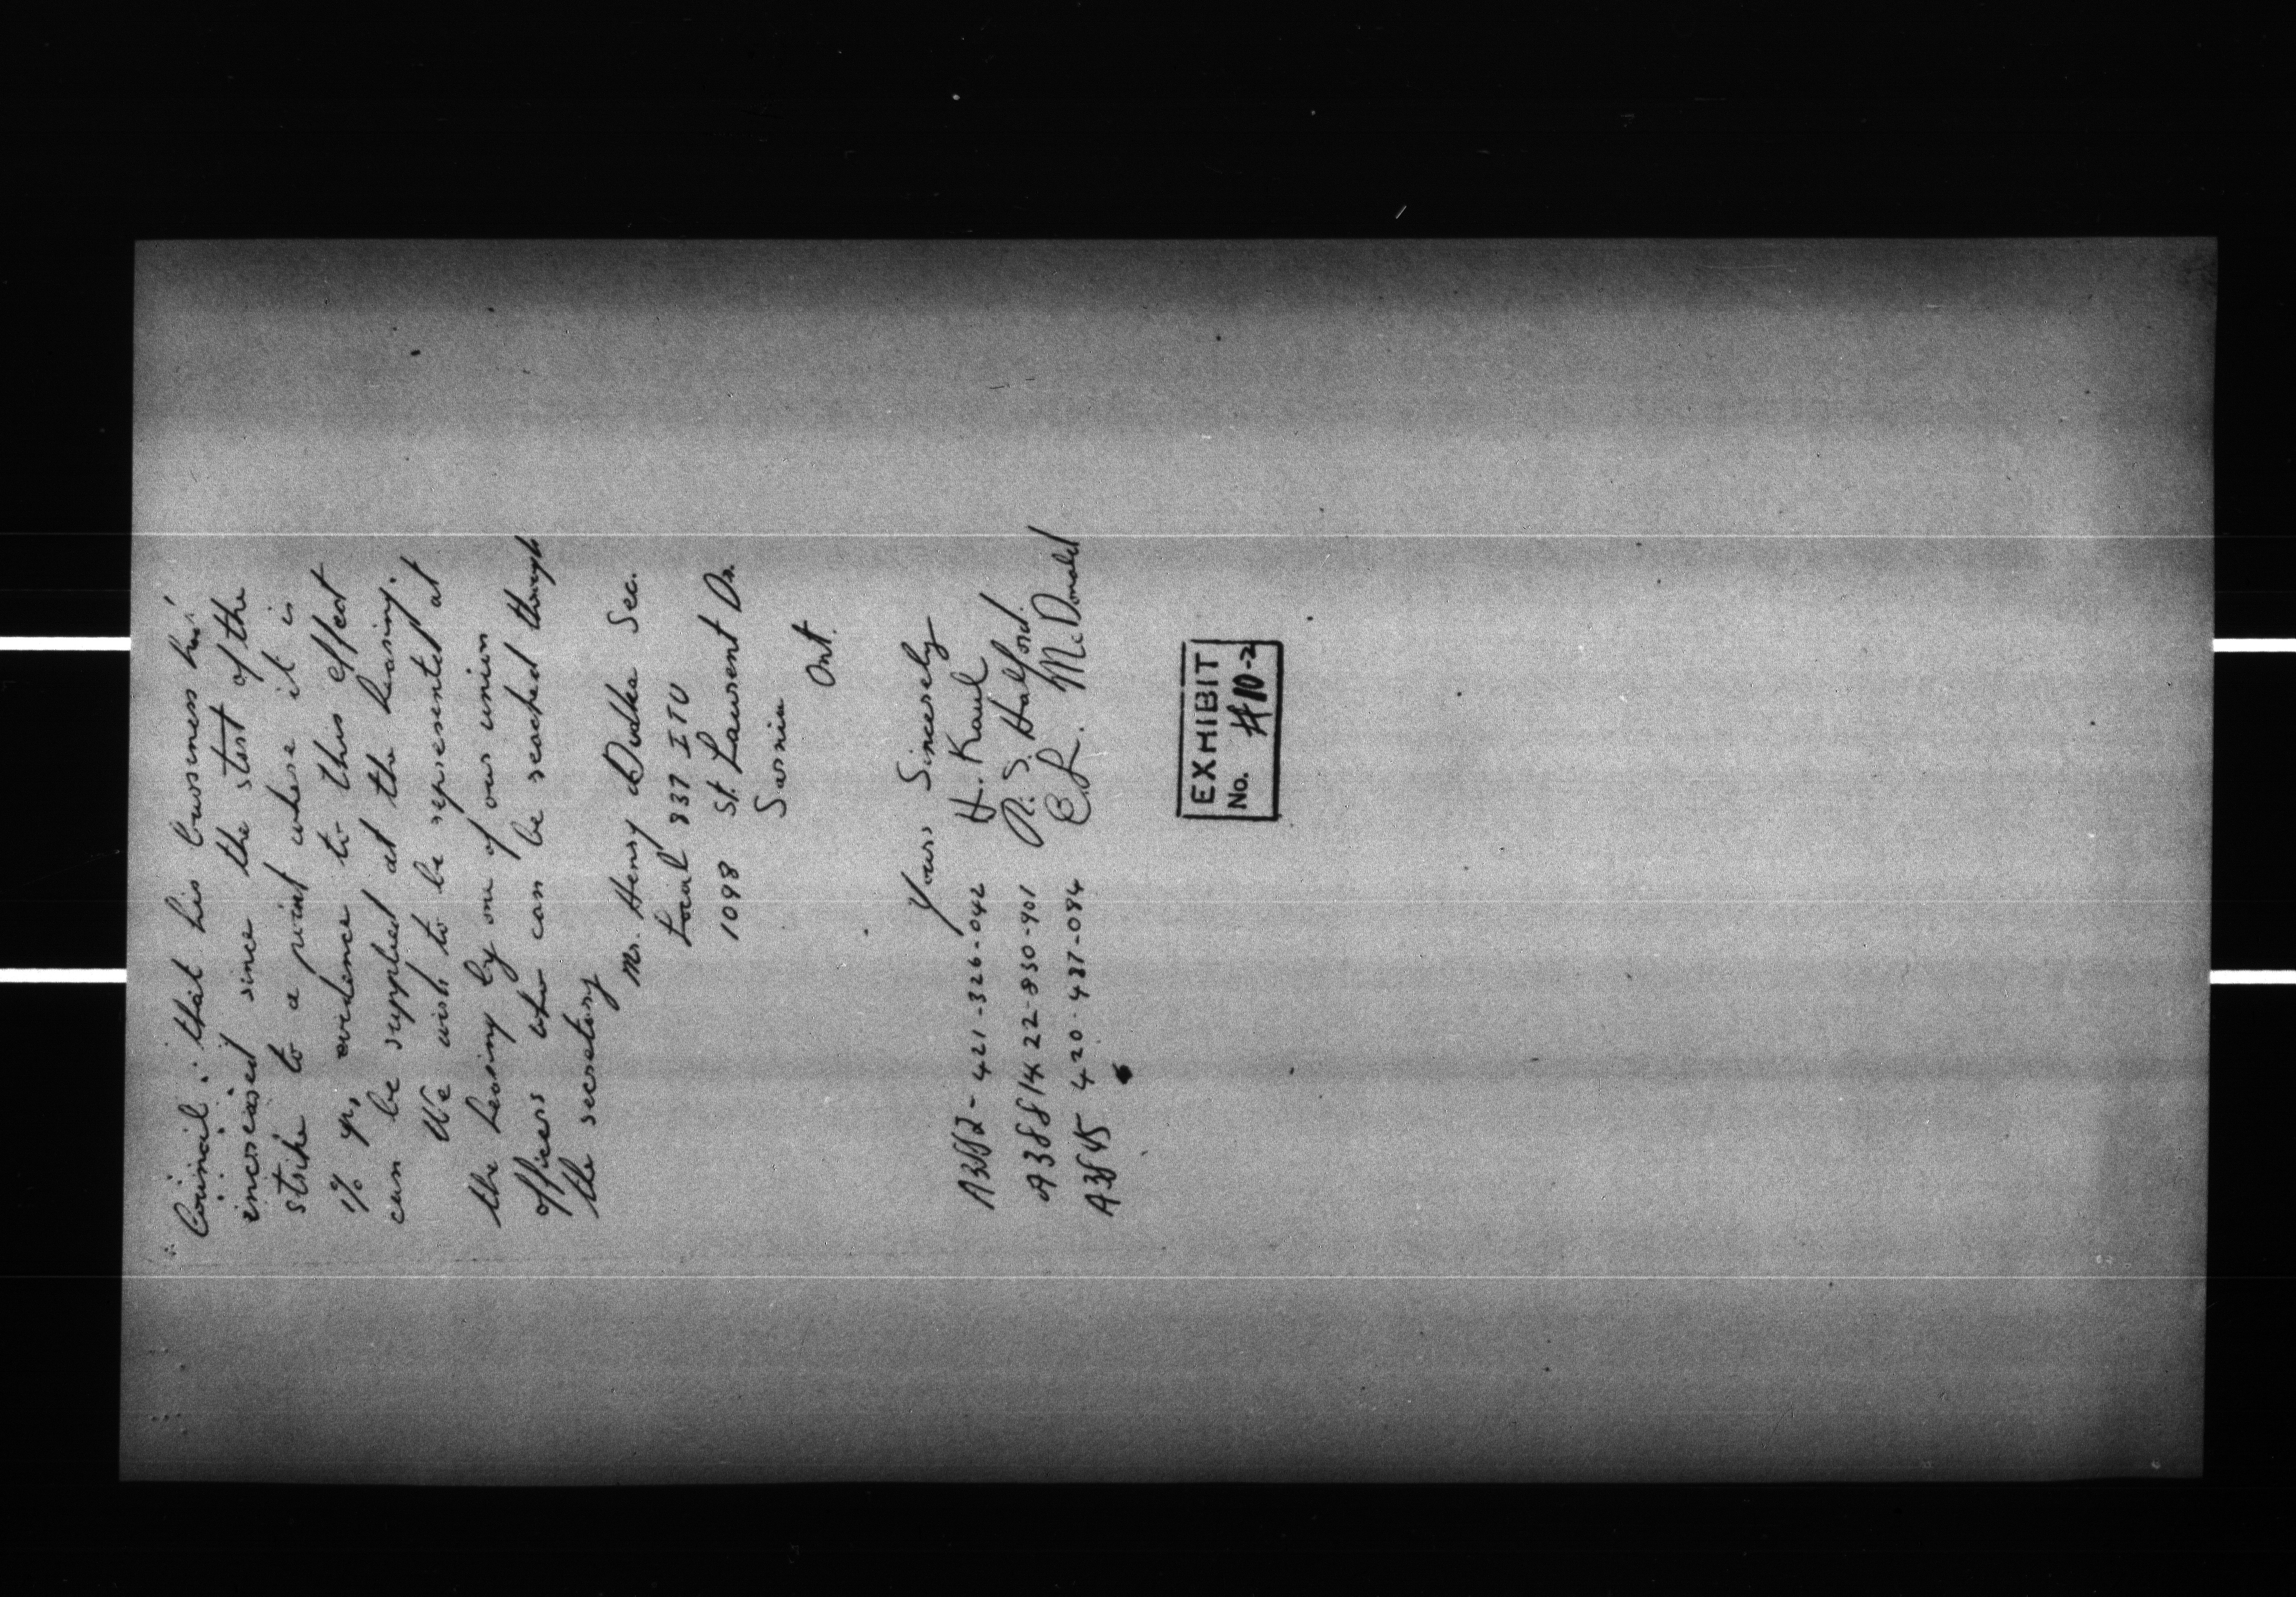 Council: that his business has
increased since the start of the
strike to a point where it is
up, evidence to this effect
can be supplied at the hearing.
We wish to be represented at
the hearing by one of our union
officers who can be reached through
the secretary
Mr. Henry Dudka Sec.
Local 837 ITU
1098 St. Laurent Dr.
Sarnia
Ont.
Yours Sincerely
421-326-042 H. Kaul
22-830-901 R. S. Halford
420-487-084 C. L. McDonald
EXHIBIT
No. #10-2